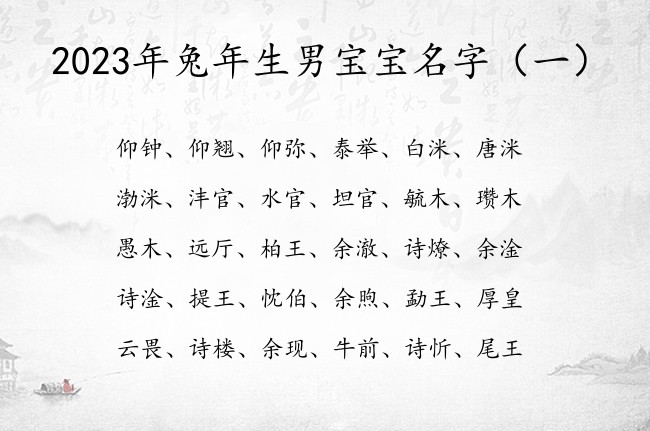 2023年兔年生男宝宝名字（一）
仰钟、仰翘、仰弥、泰举、白洣、唐洣
渤洣、沣官、水官、坦官、毓木、瓒木
愚木、远厅、柏王、余澈、诗燎、余淦
诗淦、提王、忱伯、余煦、勐王、厚皇
云畏、诗楼、余现、牛前、诗忻、尾王